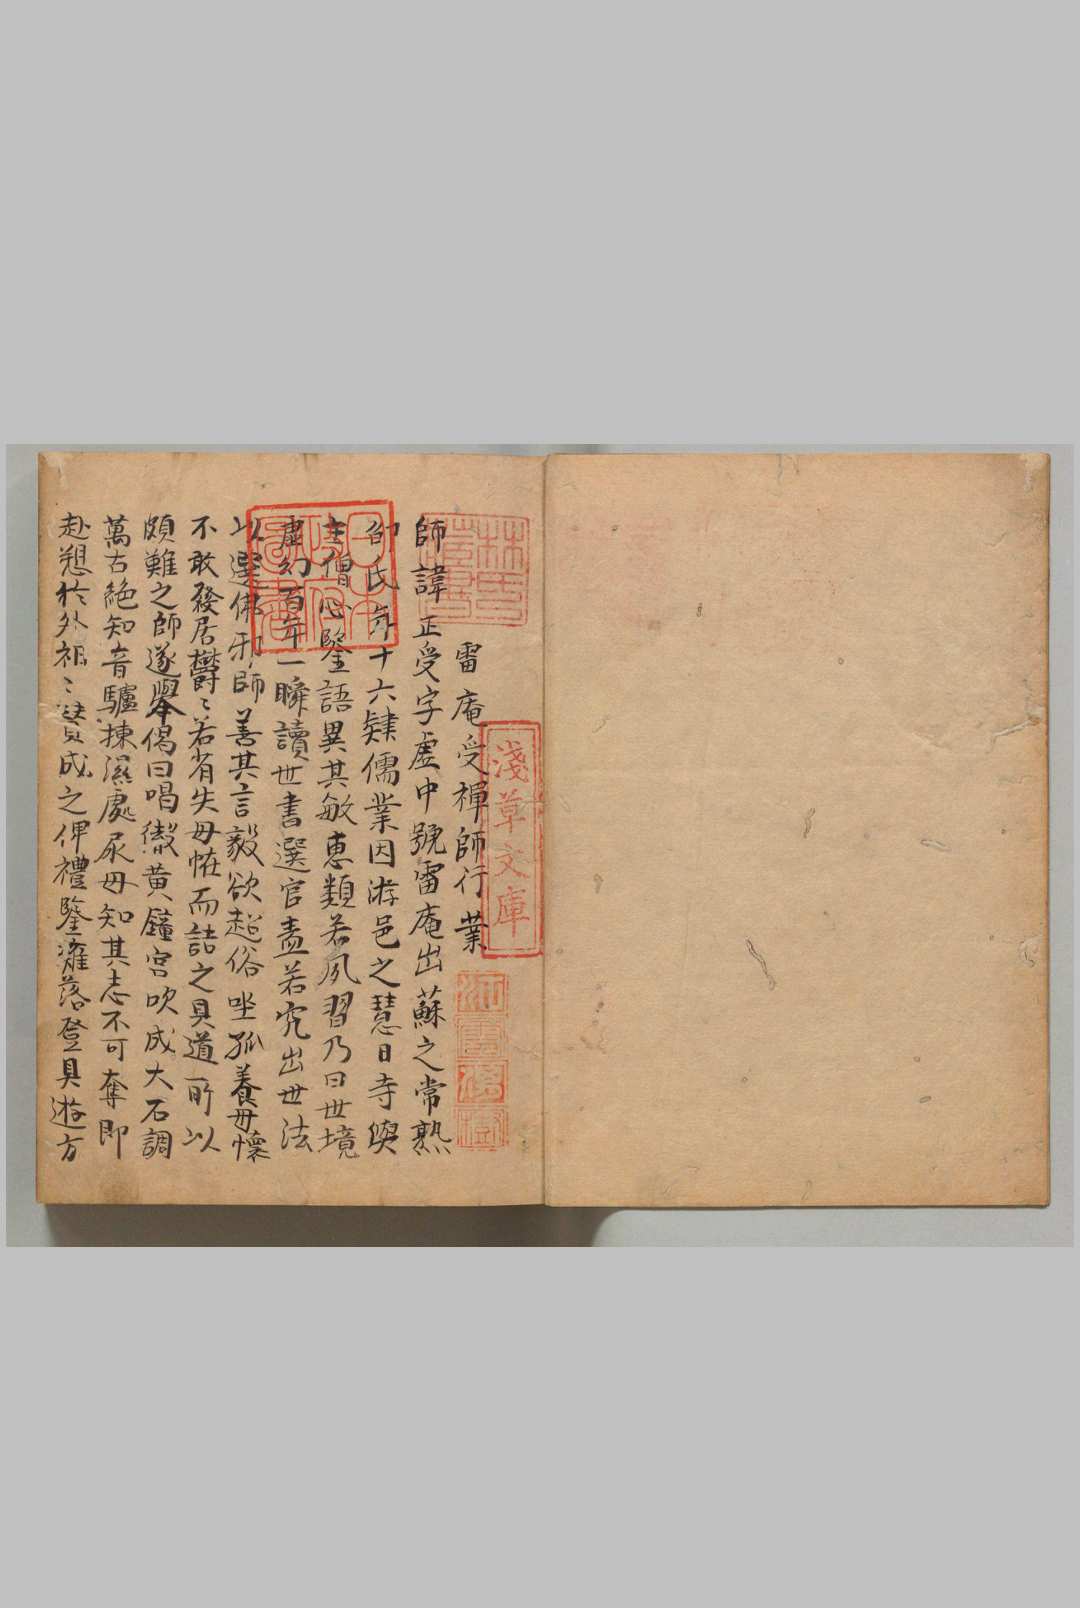 雷庵受禪師行業
師諱正受字虛中號雷庵出蘇之常熟
邵氏年十六肄儒業因游邑之慧日寺與
主僧心鑒語異其敏惠類若夙習乃曰世境
虛幻百年一瞬讀世書選官盍若究出世法
以選佛耶師善其言毅欲超俗坐孤養母懷
不敢發居欝〻若有失母恠而詰之具道所以
頗難之師遂舉偈曰唱徹黃鐘宮吹成大石調
萬古絕知音驢揀濕處尿母知其志不可奪即
赴懇於外祖〻賛成之俾禮鑒薙落登具遊方
林氏藏書
日本政府圖書
淺草文庫
江雲渭樹